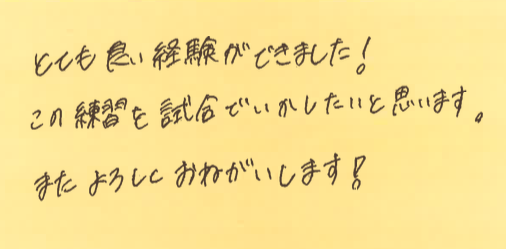 とても良い経験ができました!
この練習を試合でいかしたいと思います。
またよろしくおねがいします!